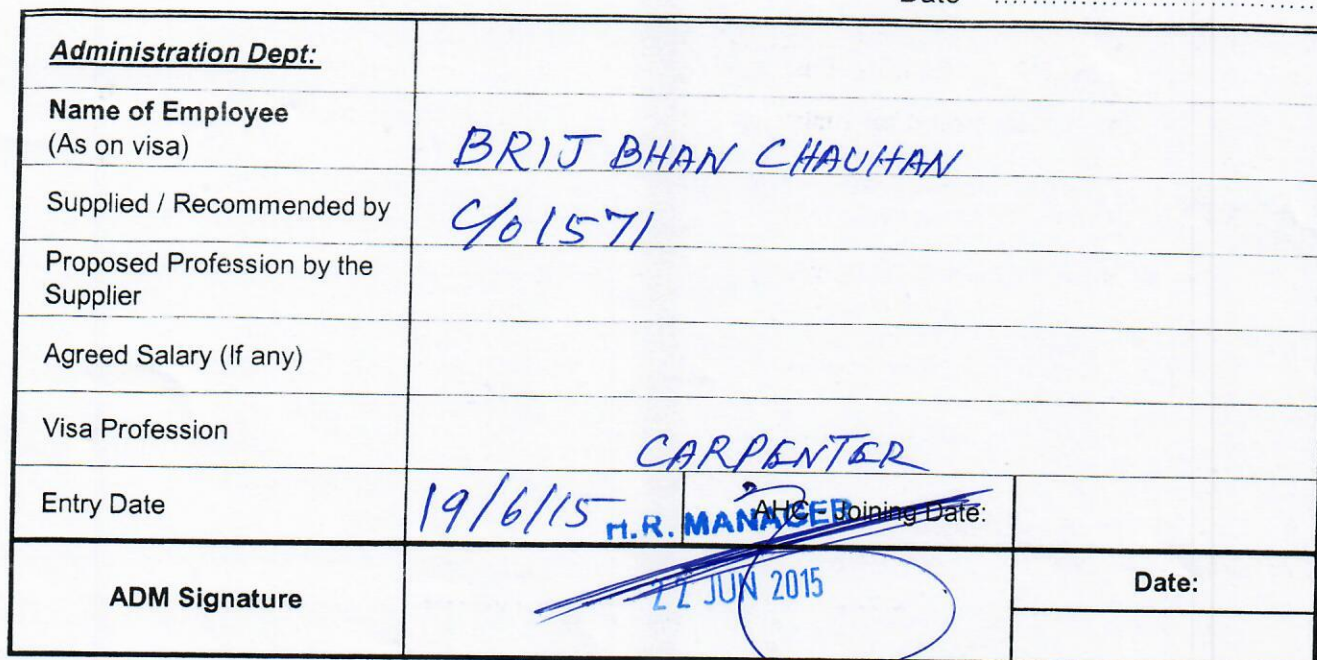 Date ................................
Administration Dept:
Name of Employee
(As on visa)
BRIJ BHAN CHAUHAN
Supplied / Recommended by
C/o 1571
Proposed Profession by the
Supplier
Agreed Salary (If any)
Visa Profession
CARPENTER
Entry Date
19/6/15
AHC Joining Date:
H.R. MANAGER
22 JUN 2015
ADM Signature
Date: